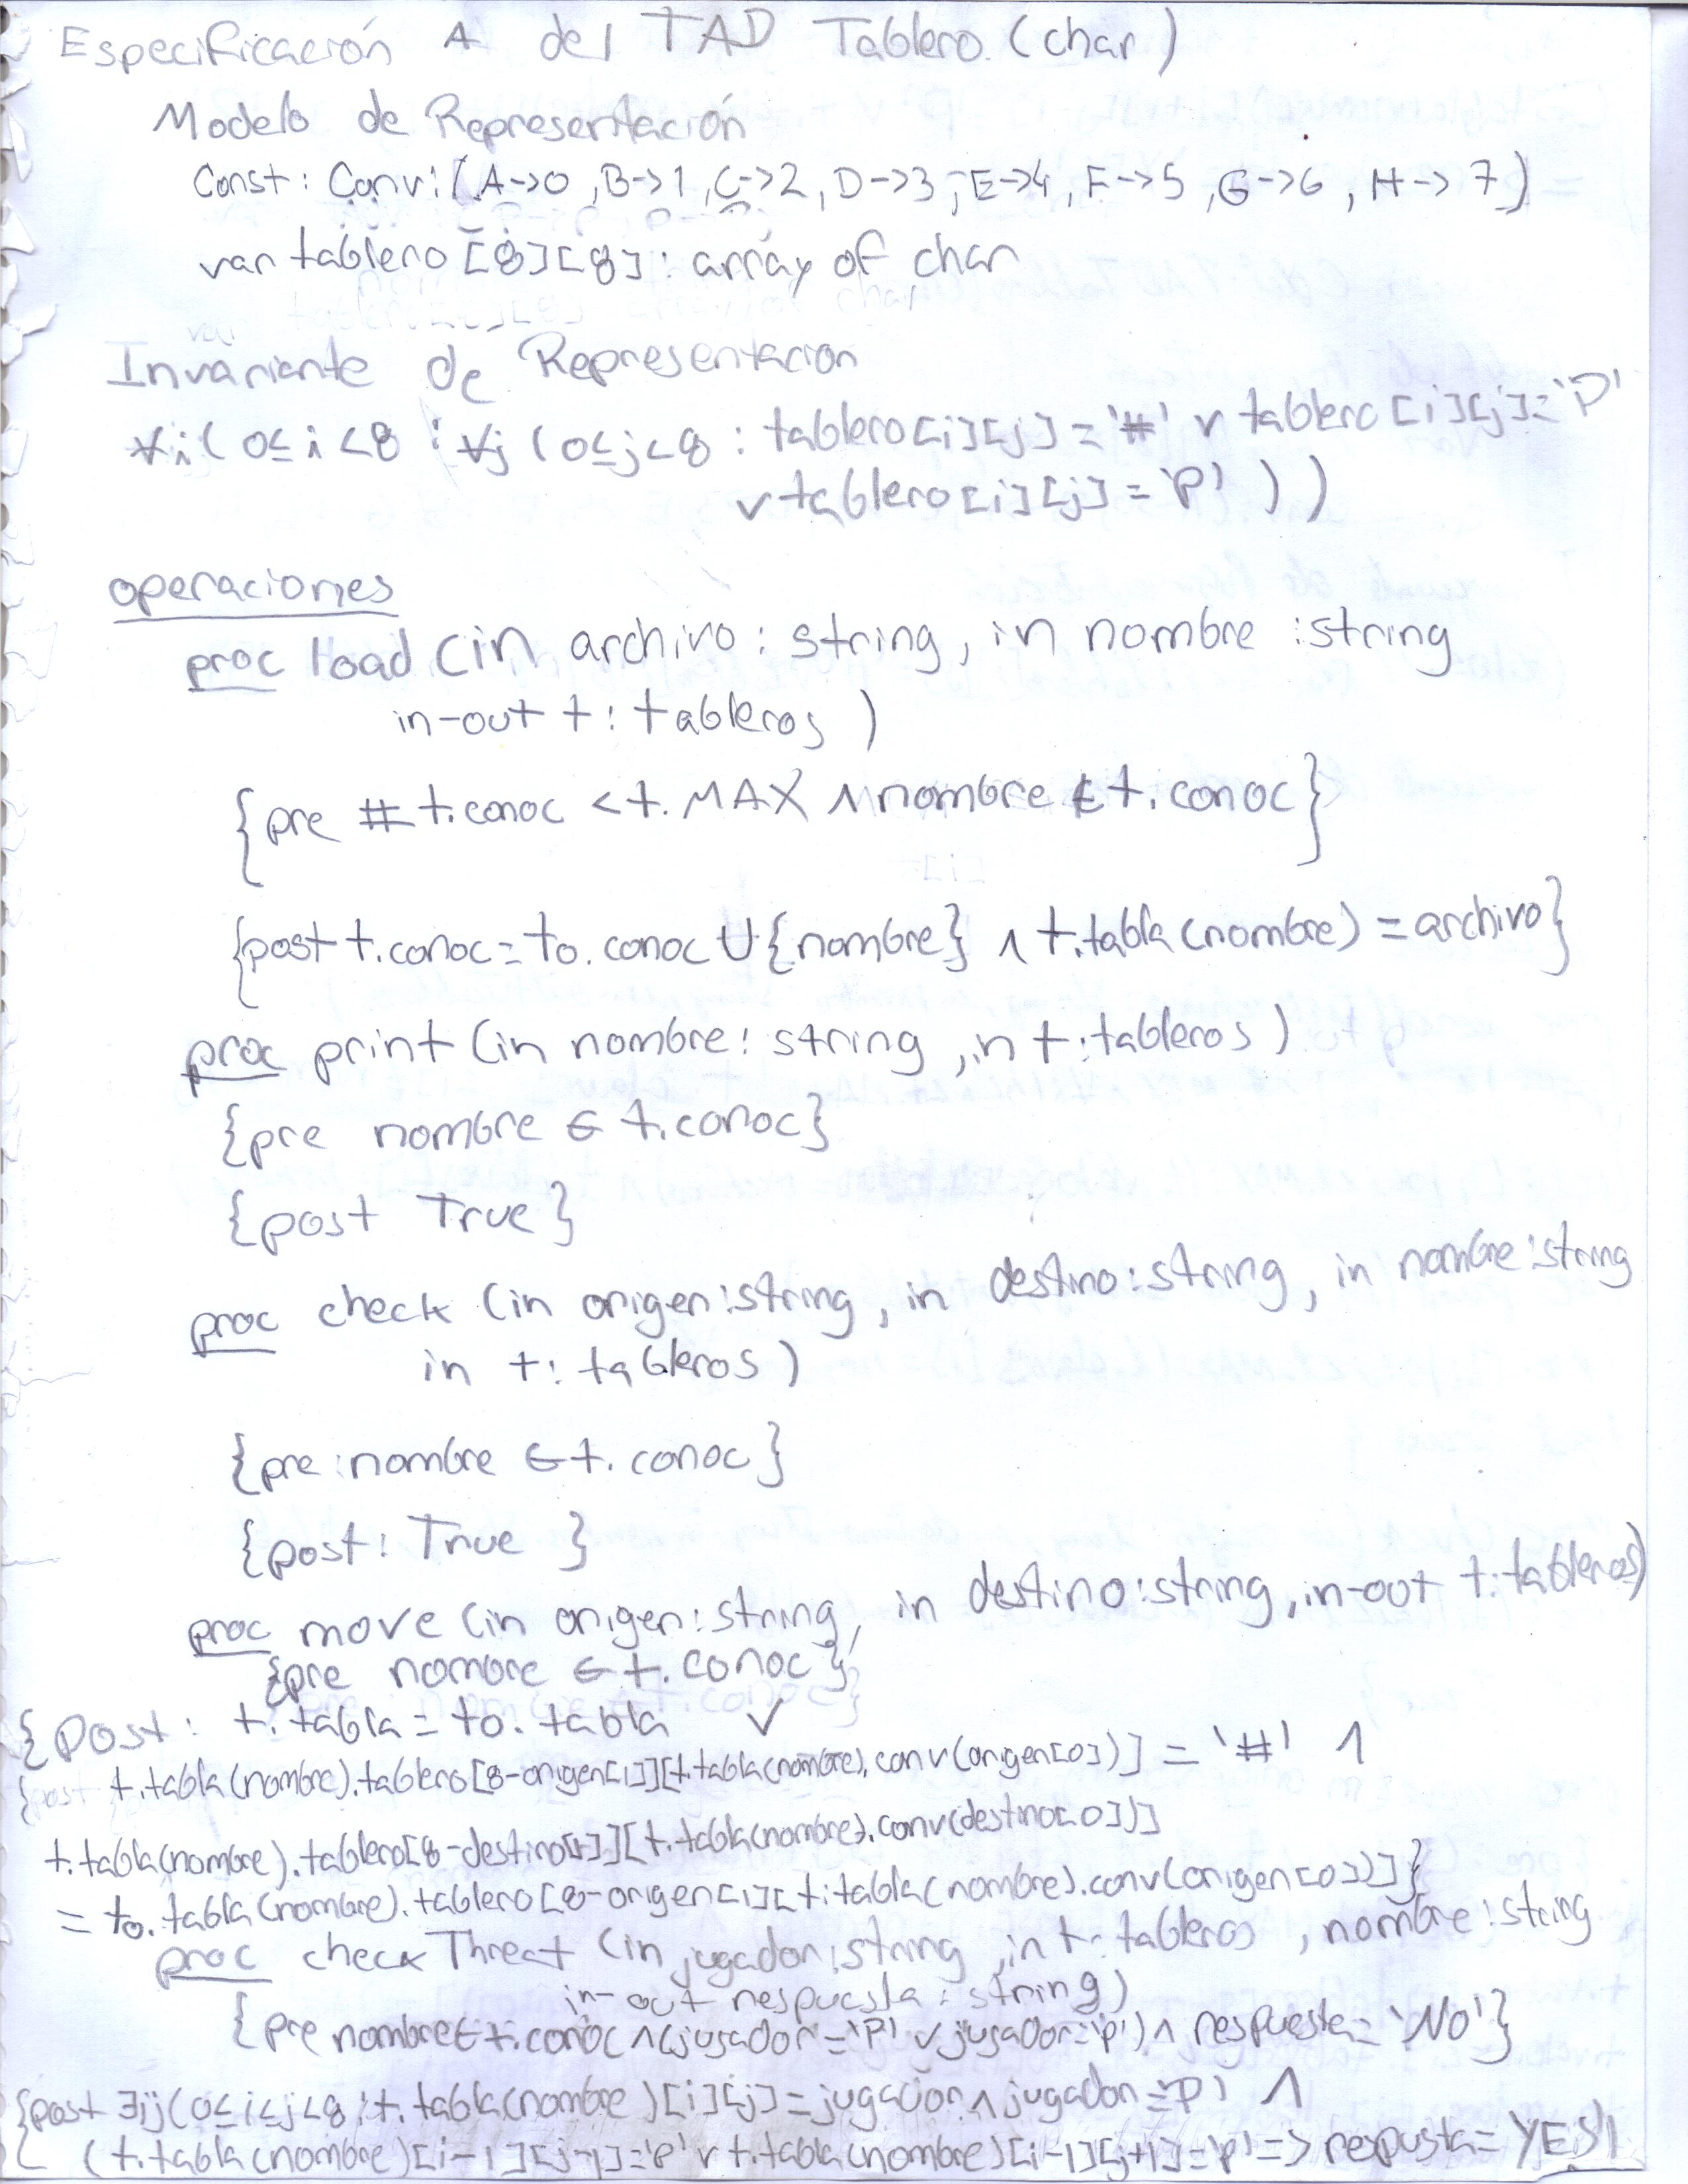 Especificación A del TAD Tablero (char)
Modelo de Representación
Const: Conv: (A->0, B->1, C->2, D->3, E->4, F->5, G->6, H->7)
var tablero [8][8]: array of char
Invariante de Representación
∀i( 0≤i<8 : ∀j (0≤j<8 : tablero[i][j]='#' ∨ tablero[i][j]='P'
∨ tablero[i][j]='p' ) )
operaciones
proc load (in archivo: string, in nombre :string
in-out t: tableros )
{pre #t.conoc < t.MAX ∧ nombre ∉ t.conoc}
{post t.conoc = to.conoc U {nombre} ∧ t.tabla(nombre) = archivo}
proc print (in nombre: string, in t:tableros)
{pre nombre ∈ t.conoc}
{post True}
proc check (in origen:string, in destino:string, in nombre:string
in t: tableros)
{pre:nombre ∈ t.conoc}
{post: True }
proc move (in origen:string, in destino:string, in-out t:tableros)
{pre nombre ∈ t.conoc}
{Post: t.tabla = to.tabla ∨
t.tabla(nombre).tablero[8-origen[1]][t.tabla(nombre).conv(origen[0])] = '#' ∧
t.tabla(nombre).tablero[8-destino[1]][t.tabla(nombre).conv(destino[0])]
= to.tabla(nombre).tablero[8-origen[1][t.tabla(nombre).conv(origen[0])]}
proc checkThreat (in jugador:string, in t: tableros, nombre:string
in-out respuesta: string)
{pre nombre ∈ t.conoc ∧ (jugador='P' ∨ jugador='p') ∧ respuesta='No'}
{post ∃ij(0≤i≤j<8 : t.tabla(nombre)[i][j]=jugador ∧ jugador='P' ∧
(t.tabla(nombre)[i-1][j-1]='p' ∨ t.tabla(nombre)[i-1][j+1]='p' => respusta= YES'